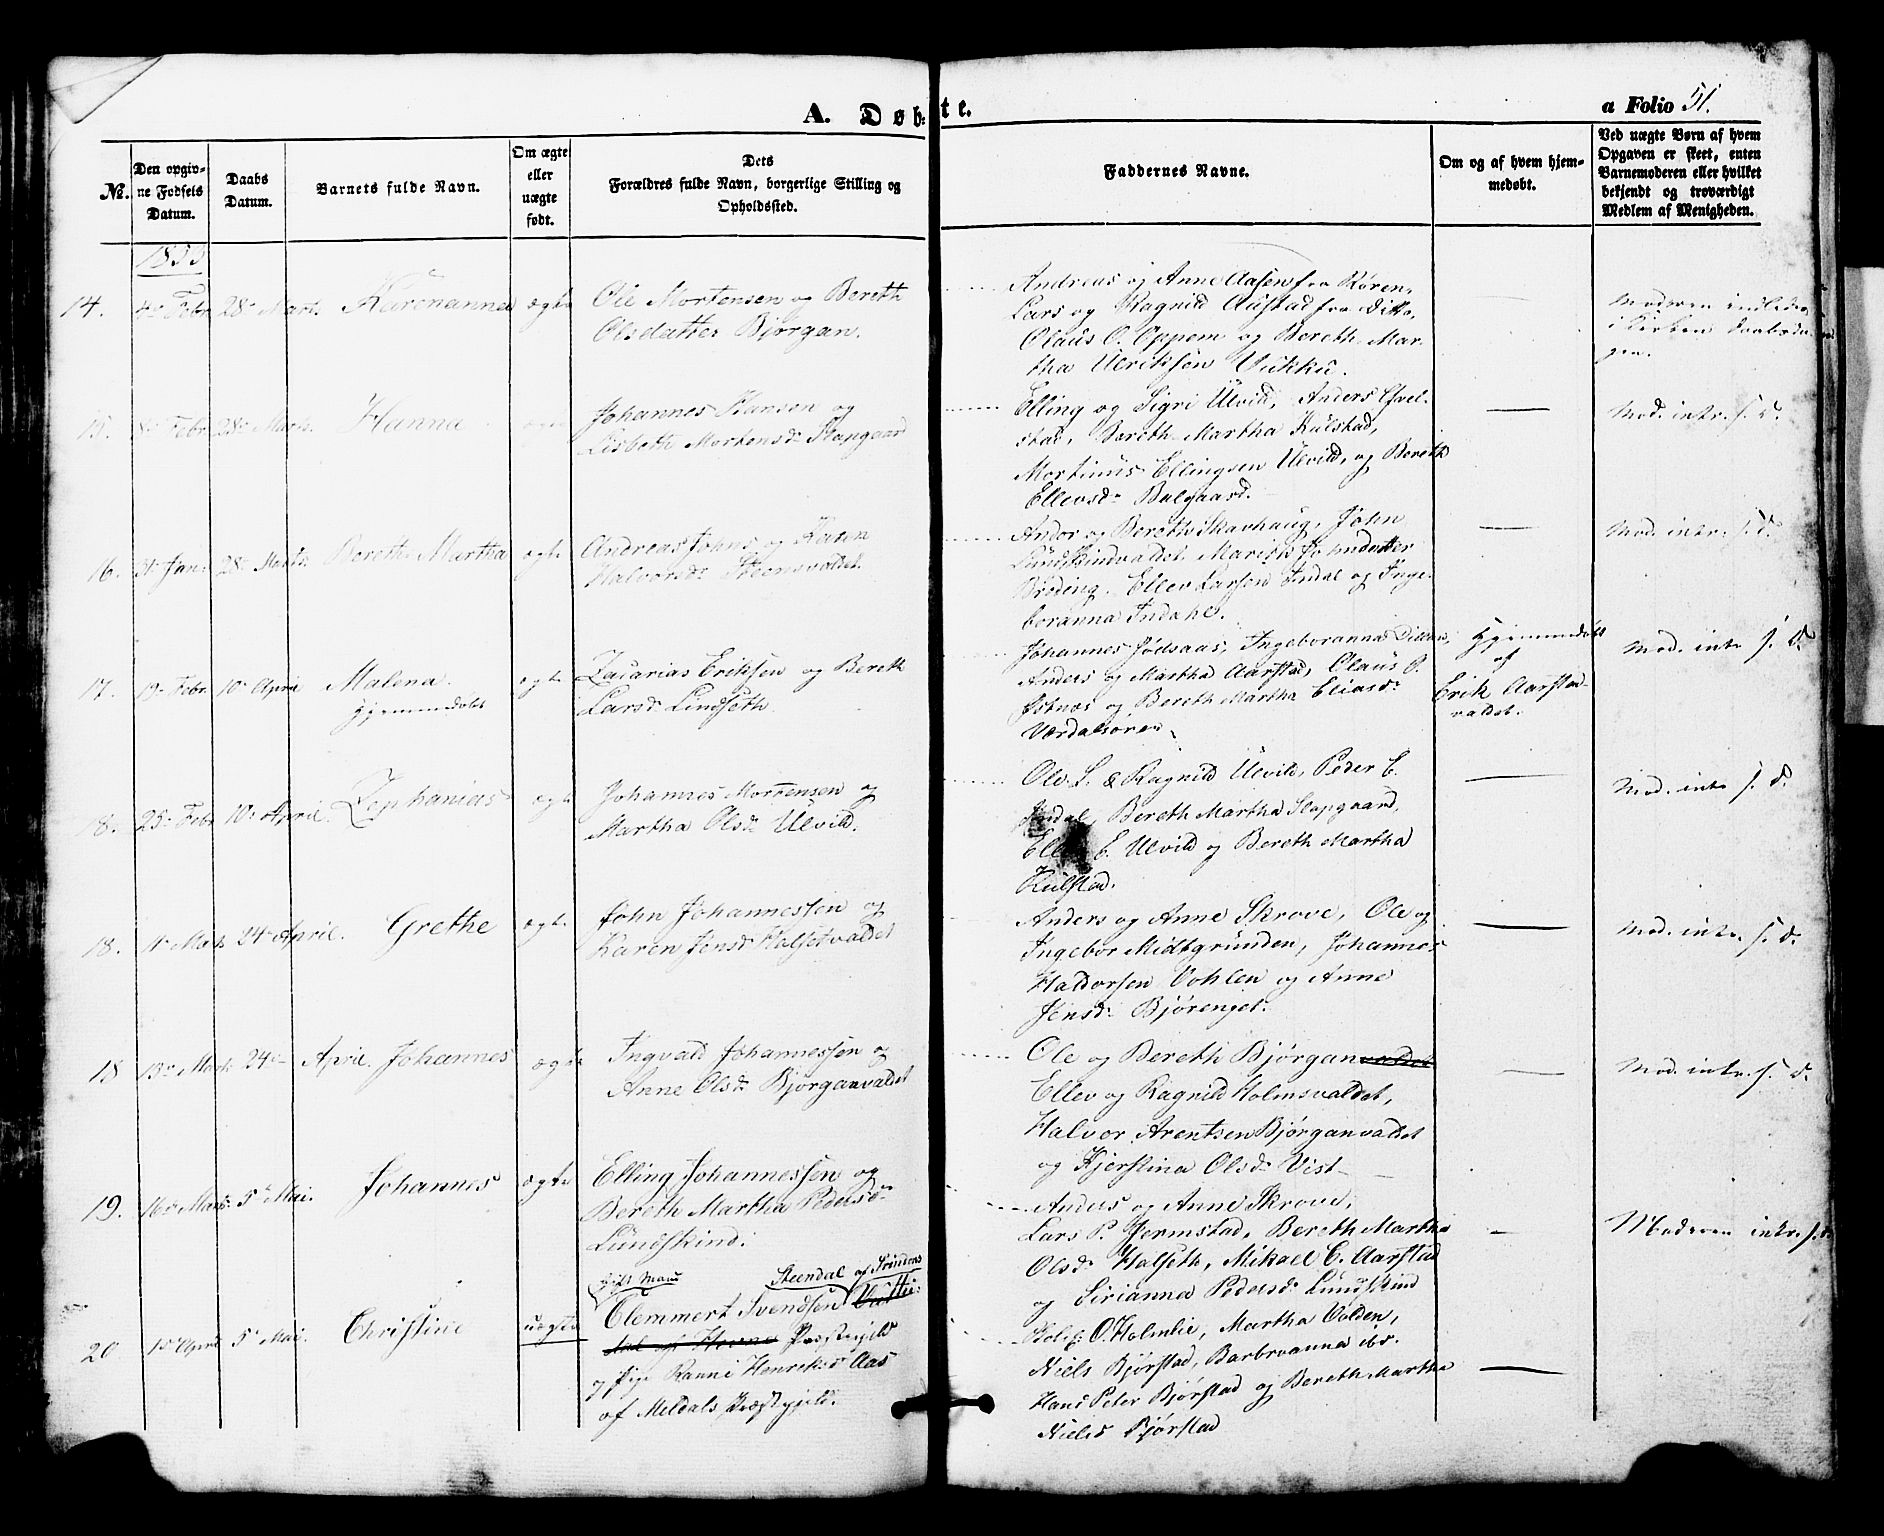 A. Døbte.
a Folio 51.
№.
Den opgivne Fødsels Datum.
Daabs Datum.
Barnets fulde Navn.
Om ægte eller uægte født.
Dets Forældres fulde Navn, borgerlige Stilling og Opholdssted.
Faddernes Navne.
Om og af hvem hjemmedøbt.
Ved uægte Børn af hvem Opgaven er skeet, enten Barnemoderen eller hvilket bekjendt og troværdigt Medlem af Menigheden.
1853
14. 4de Febr. 28de Mart. Karenanna ægte
Ole Mortensen og Bereth
Olsdatter Bjørgan.
Andreas og Anne Aasen fra Røren,
Lars og Ragnild Austad fra Ditto,
Olaus O. Oppem og Bereth Mar-
tha Ulriksen Vukku.
Moderen indleder
i Kirken Daabsda-
gen.
15. 8de Febr. 28de Marts. Hanna ægte
Johannes Hansen og
Lisbeth Mortensd: Slapgaard
Elling og Sigri Ulvild, Anders
stad, Bereth Martha Kulstad,
Mortinus Ellingsen Ulvild, og Bereth
Ellevsd: Balgaard.
Mod. intr. s. D.
16. 31 Jan: 28de Marts: Bereth Martha ægte
Andreas Johns og Karen
Halvorsd: Steensvaldet
Andor og Bereth Skavhaug, John
Lundskindvaldet Marith Johndatter
Brøding. Ellev Larsen Indal og Inge-
boranna Indahl.
Mod. intr. s. D.
17. 19de Febr. 10de April Malena. ægte
Hjemmedøbt
Zacarias Eriksen og Bereth
Larsd: Lindseth
Johannes Jødsaas, Ingeboranna
Anders og Martha Aarstad, Olaus O.
og Bereth Martha Eliasd:
Værdalsøren.
Hjemmedøbt
af
Erik Aarstad-
valdet.
Mod. intr s. D.
18. 25de Febr 10de April. Zephanias ægte
Johannes Mortensen og
Martha Olsd: Ulvild.
Ole L. & Ragnild Ulvild, Peder E.
Indal, Bereth Martha Slapgaard,
E. Ulvild og Bereth Martha
Kulstad.
Mod. intr s. D.
18. 11te Marts 24de April. Grethe ægte
John Johannessen og
Karen Jensd: Halsetvaldet
Anders og Anne Skrove, Ole og
Ingebor Midtgrunden, Johannes
Haldorsen Vohlen og Anne
Jensd: Bjørenget.
Mod. intr. s. D.
18 13de Marts 24de April. Johannes ægte
Ingvald Johannessen og
Anne Olsd: Bjørganvaldet
Ole og Bereth Bjørganvaldet
Ellev og Ragnild Holmsvaldet,
Halvor Arentsen Bjørganvaldet
og Kjerstina Olsd: Vist
Mod. intr. s. D.
19. 16de Marts: 5te Mai. Johannes ægte
Elling Johannessen og
Bereth Martha Pedersd:
Lundskind:
Anders og Anne Skrove,
Lars P. Jermstad, Bereth Martha
Olsd: Halseth, Mikael E. Aarstad
og Sirianna Pedersd: Lundskind
Moderen intr. s. D.
20 1ste April 5te Mai. Christine uægte
Gift Mand Steendal af Strindens
Clemmert Svendsen
Præstegjeld
og Pige Ranni Henriksd: Aas
af Meldals Præstegjeld.
O. Holmlie, Martha Volden,
Niels Bjørstad, Barbroanna ibd.
Hans Peter Bjørstad og Bereth Martha
Niels Bjørstad